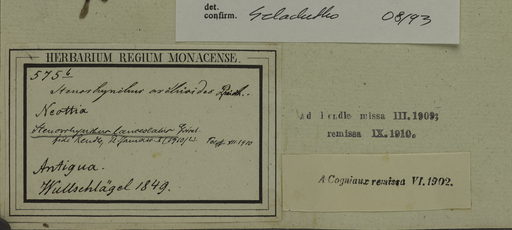 det.
confirm. 08/93
HERBARIUM REGIUM MONACENSE.
575b
Stenorhynchus orchioides Rich.
Neottia
Stenorrhynchus lanceolatus Griseb.
fide Rendle, Fl. Jamaica I (1910)
Antigua.
Wullschlägel 1849.
Ad Rendle missa III.1909;
remissa IX.1910.
A Cogniaux remissa VI.1902.